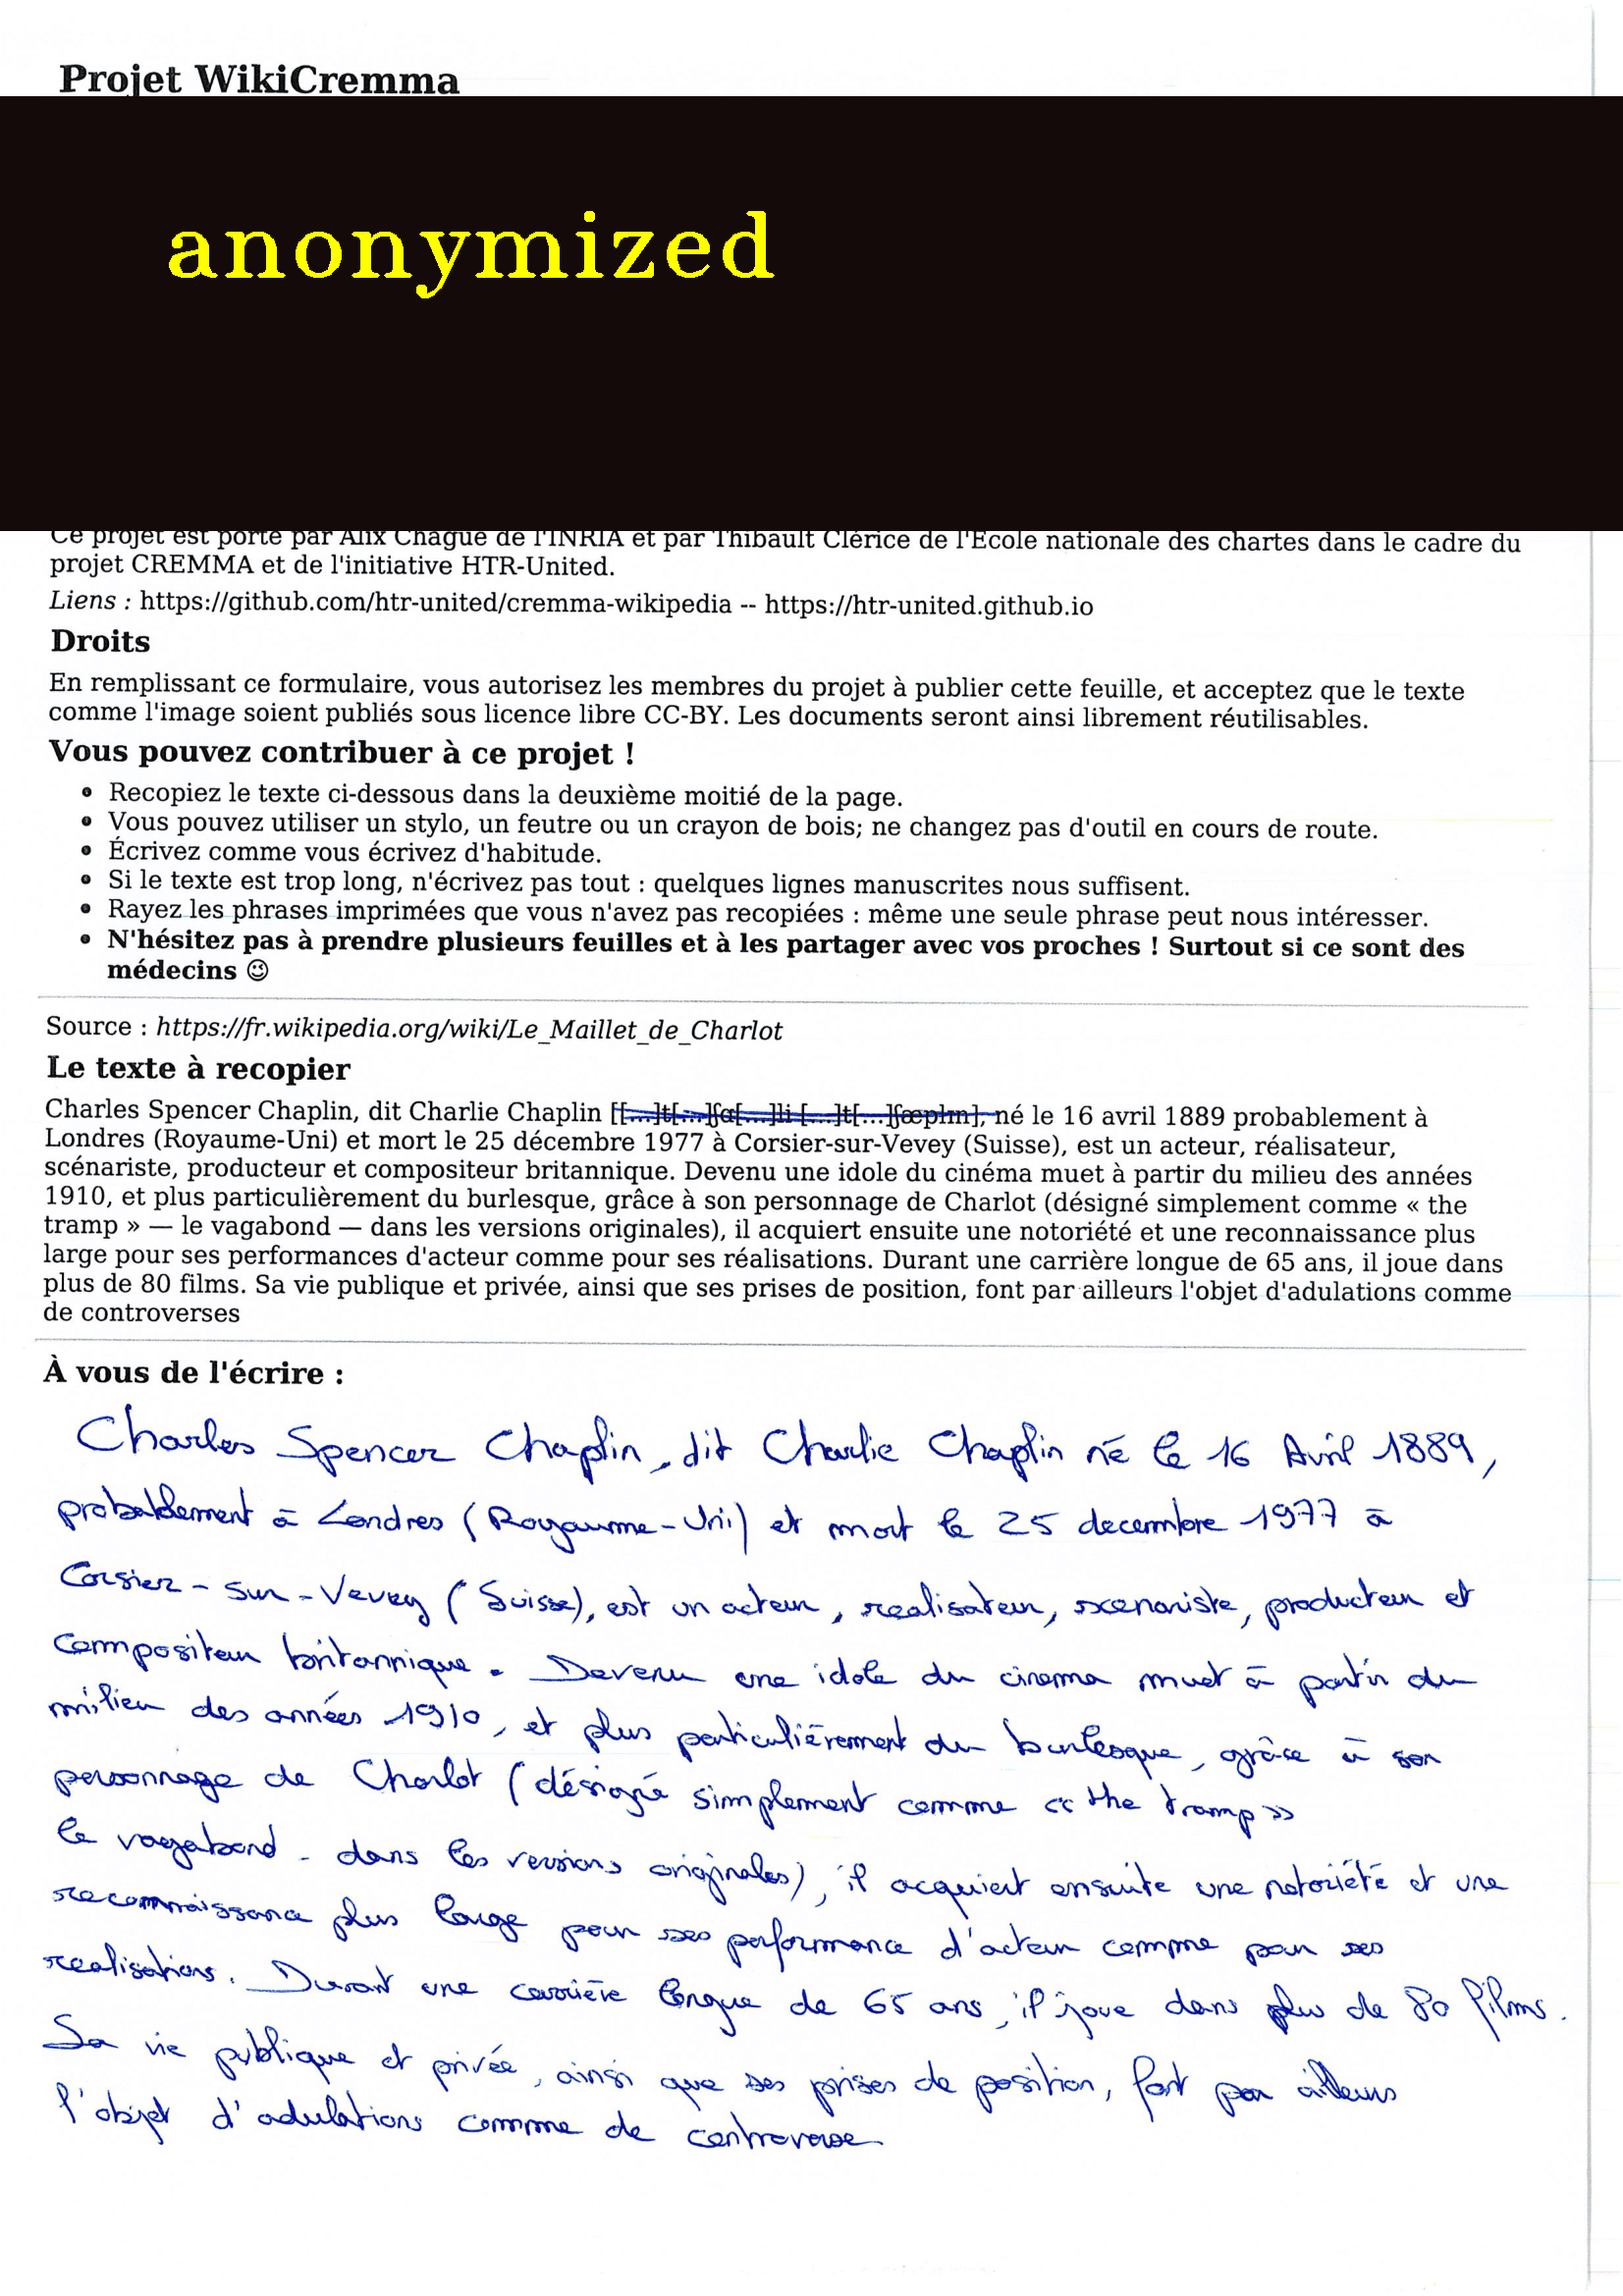 Projet WikiCremma
anonymized
Ce projet est porté par Alix Chagué de l'INRIA et par Thibault Clérice de l'École nationale des chartes dans le cadre du
projet CREMMA et de l'initiative HTR-United.
Liens : https://github.com/htr-united/cremma-wikipedia -- https://htr-united.github.io
Droits
En remplissant ce formulaire, vous autorisez les membres du projet à publier cette feuille, et acceptez que le texte
comme l'image soient publiés sous licence libre CC-BY. Les documents seront ainsi librement réutilisables.
Vous pouvez contribuer à ce projet !
• Recopiez le texte ci-dessous dans la deuxième moitié de la page.
• Vous pouvez utiliser un stylo, un feutre ou un crayon de bois; ne changez pas d'outil en cours de route.
• Écrivez comme vous écrivez d'habitude.
• Si le texte est trop long, n'écrivez pas tout : quelques lignes manuscrites nous suffisent.
• Rayez les phrases imprimées que vous n'avez pas recopiées : même une seule phrase peut nous intéresser.
• N'hésitez pas à prendre plusieurs feuilles et à les partager avec vos proches ! Surtout si ce sont des
médecins 😉
Source : https://fr.wikipedia.org/wiki/Le_Maillet_de_Charlot
Le texte à recopier
Charles Spencer Chaplin, dit Charlie Chaplin [[...]t[...]ʃɑ[...]li [...]t[...]ʃæplɪn], né le 16 avril 1889 probablement à
Londres (Royaume-Uni) et mort le 25 décembre 1977 à Corsier-sur-Vevey (Suisse), est un acteur, réalisateur,
scénariste, producteur et compositeur britannique. Devenu une idole du cinéma muet à partir du milieu des années
1910, et plus particulièrement du burlesque, grâce à son personnage de Charlot (désigné simplement comme « the
tramp » — le vagabond — dans les versions originales), il acquiert ensuite une notoriété et une reconnaissance plus
large pour ses performances d'acteur comme pour ses réalisations. Durant une carrière longue de 65 ans, il joue dans
plus de 80 films. Sa vie publique et privée, ainsi que ses prises de position, font par ailleurs l'objet d'adulations comme
de controverses
À vous de l'écrire :
Charles Spencer Chaplin, dit Charlie Chaplin né le 16 Avril 1889,
probablement à Londres (Royaume-Uni) et mort le 25 decembre 1977 à
Corsier-sur-Vevey (Suisse), est un acteur, realisateur, scenariste, producteur et
compositeur britannique. Devenu une idole du cinema muet à partir du
milieu des années 1910, et plus particulièrement du burlesque, grâce à son
personnage de Charlot (désigné simplement comme « the tramp »
le vagabond - dans les versions originales), il acquiert ensuite une notoriété et une
reconnaissance plus large pour ses performance d'acteur comme pour ses
realisations. Durant une carrière longue de 65 ans, il joue dans plus de 80 films.
Sa vie publique et privée, ainsi que ses prises de position, font par ailleurs
l'objet d'adulations comme de controverse